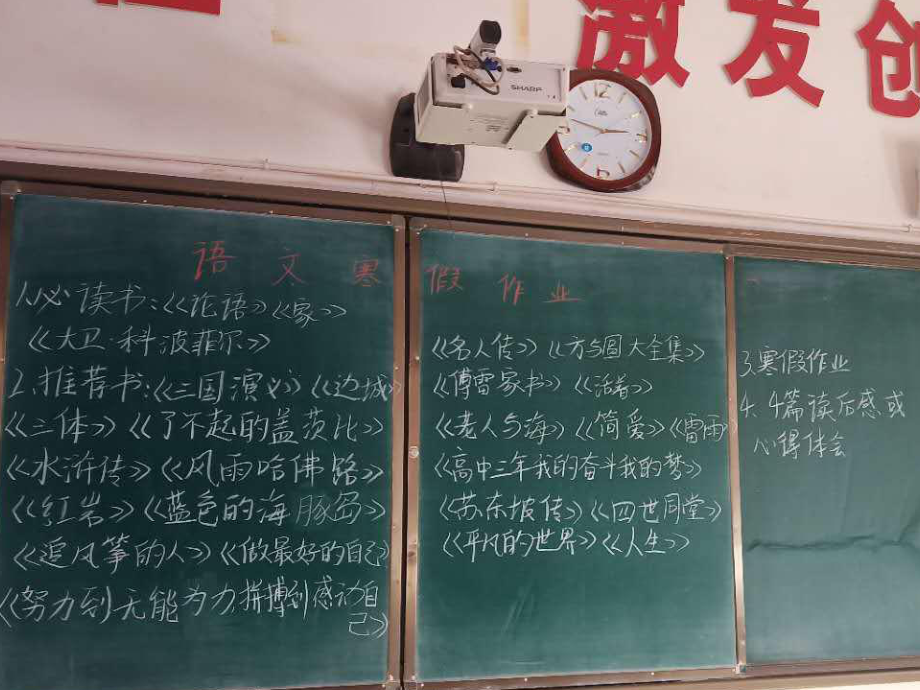 激发创
SHARP
语文寒假作业
1.必读书:《论语》《家》
《大卫·科波菲尔》
2.推荐书:《三国演义》《边城》
《三体》《了不起的盖茨比》
《水浒传》《风雨哈佛路》
《红岩》《蓝色的海豚岛》
《追风筝的人》《做最好的自己》
《努力到无能为力,拼搏到感动自
己》
《名人传》《方与圆大全集》
《傅雷家书》《活着》
《老人与海》《简爱》《雷雨》
《高中三年我的奋斗我的梦》
《苏东坡传》《四世同堂》
《平凡的世界》《人生》
3.寒假作业
4.4篇读后感或
心得体会